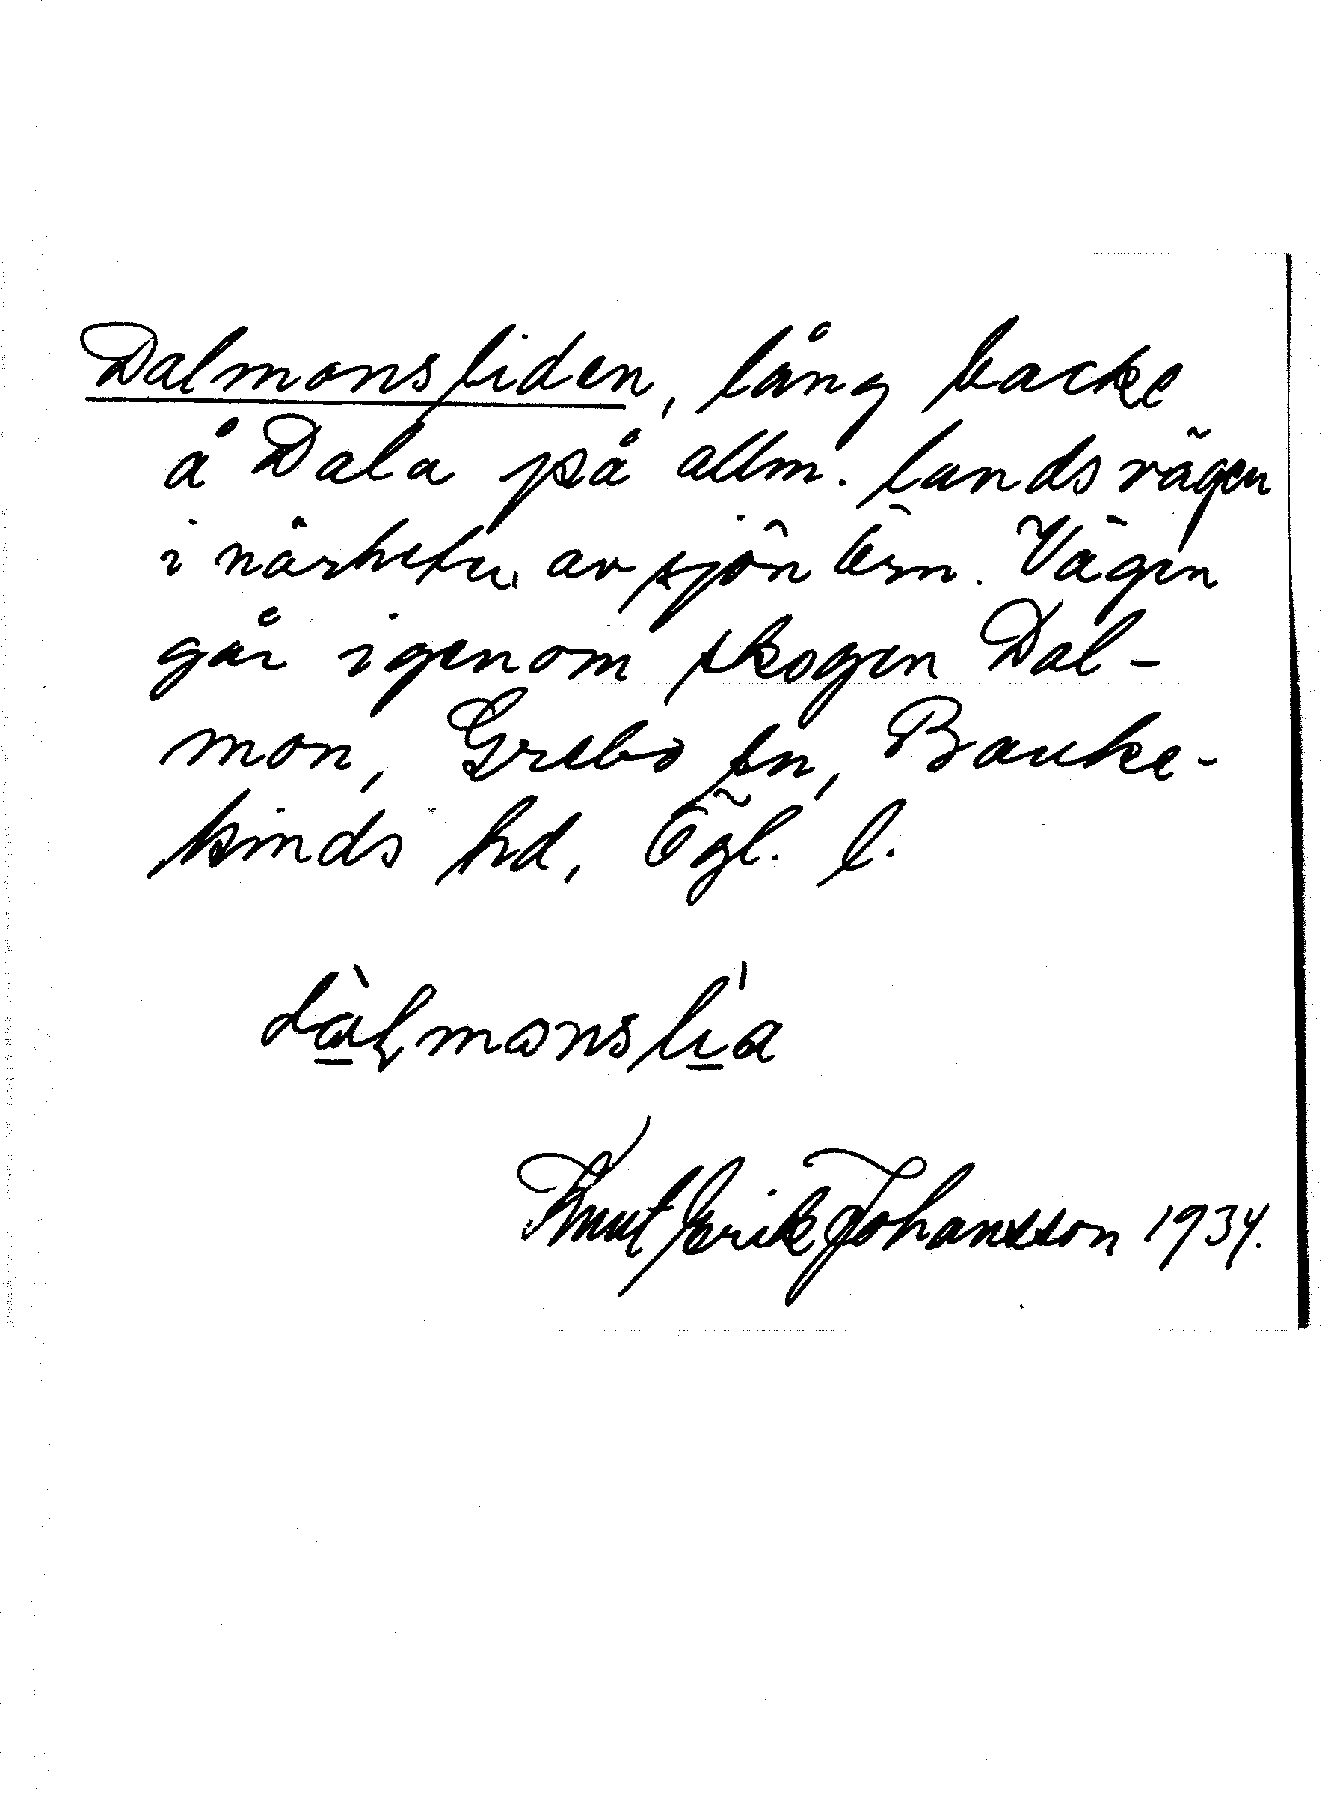 Dalmonsliden, lång backe
å Dala på allm. landsvägen
i närheten av sjön Örn. Vägen
går igenom skogen Dal-
mon, Grebo sn, Banke-
kinds hd, Ögl. l.
dàɭmonslìa
Knut Erik Johansson 1934.